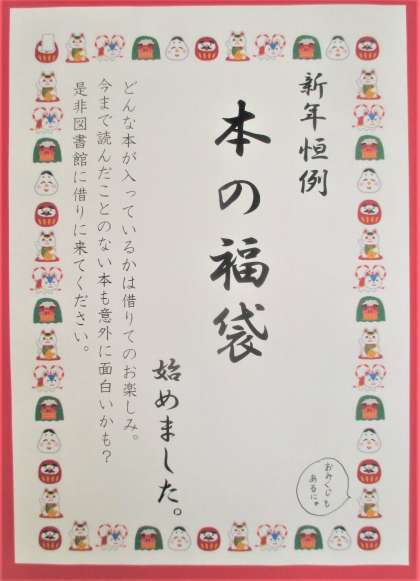 新年恒例
本の福袋
始めました。
どんな本が入っているかは借りてのお楽しみ。
今まで読んだことのない本も意外に面白いかも？
是非図書館に借りに来てください。
おみくじも
あるにゃ